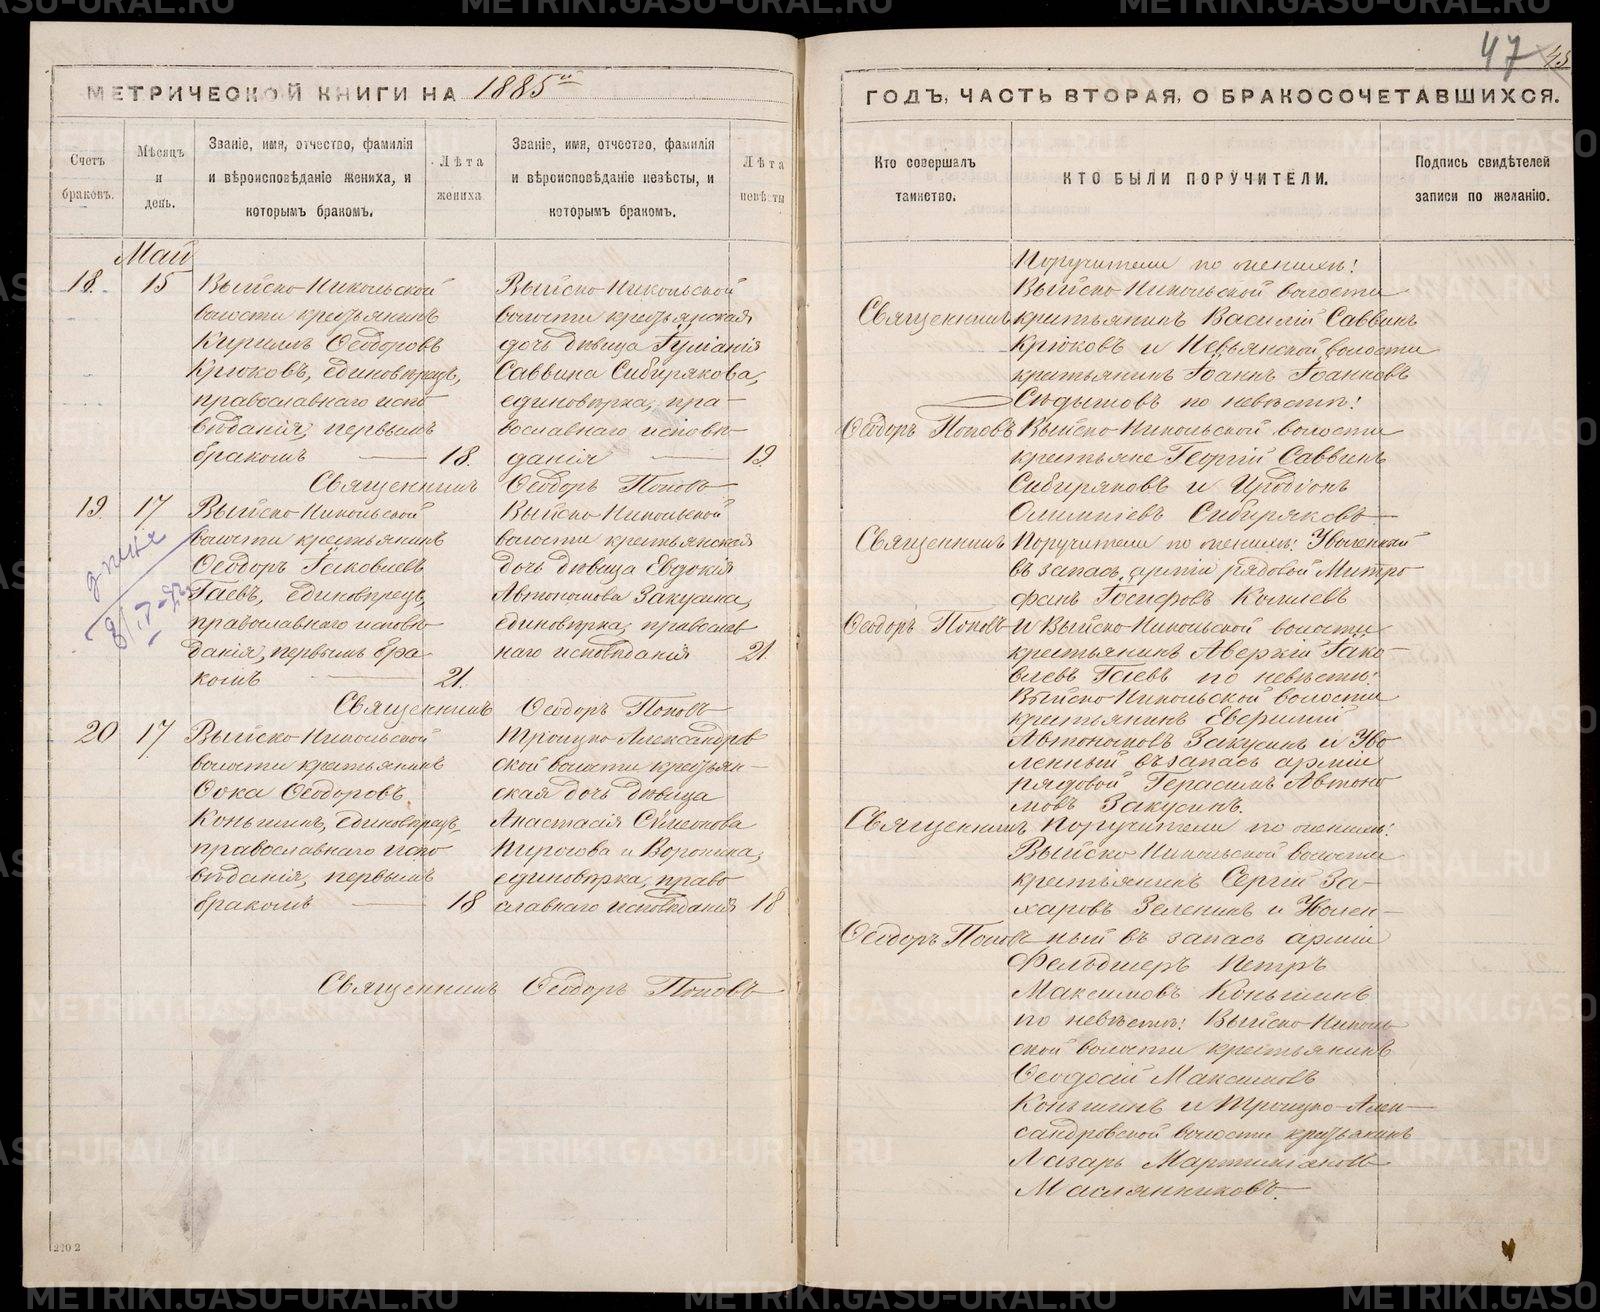 47
МЕТРИЧЕСКОЙ КНИГИ НА 1885й
ГОДЪ, ЧАСТЬ ВТОРАЯ, О БРАКОСОЧЕТАВШИХСЯ.
Счетъ браковъ.
Мѣсяцъ и день.
Званіе, имя, отчество, фамилія
и вѣроисповѣданіе жениха, и
которымъ бракомъ.
Лѣта жениха
Званіе, имя, отчество, фамилія
и вѣроисповѣданіе невѣсты, и
которымъ бракомъ.
Лѣта невѣсты
Кто совершалъ
таинство.
КТО БЫЛИ ПОРУЧИТЕЛИ.
Подпись свидѣтелей
записи по желанію.
Май
18. 15
Выйско-Никольской
волости крестьянинъ
Кириллъ Ѳеодоровъ
Крюковъ, единовѣрецъ,
православнаго испо
вѣданія, первымъ
бракомъ 18.
Выйско-Никольской
волости крестьянская
дочь дѣвица Іуліанія
Саввина Сибирякова,
единовѣрка, пра-
вославнаго исповѣ-
данія 19.
Священникъ Ѳеодоръ Поповъ
19. 17
Выйско-Никольской
волости крестьянинъ
Ѳеодоръ Іаковлевъ
Гаевъ, единовѣрецъ,
православнаго исповѣ
данія, первымъ бра-
комъ 21.
Выйско-Никольской
волости крестьянская
дочь дѣвица Евдокія
Автономова Закусина,
единовѣрка, православ
наго исповѣданія 21.
Священникъ Ѳеодоръ Поповъ
20 17
Выйско-Никольской
волости крестьянинъ
Ѳока Ѳеодоровъ
Коньшинъ, единовѣрецъ,
православнаго испо
вѣданія, первымъ
бракомъ 18
Троицко-Александров
ской волости крестьян-
ская дочь дѣвица
Анастасія Сѵмеонова
Пирогова и Воронина,
единовѣрка, право
славнаго исповѣданія 18
Священникъ Ѳеодоръ Поповъ
Священникъ
Ѳеодоръ Поповъ
Поручители по женихѣ:
Выйско-Никольской волости
крестьянинъ Василій Саввинъ
Крюковъ и Невьянской волости
крестьянинъ Іоаннъ Іоанновъ
Сѣдышовъ по невѣстѣ:
Выйско-Никольской волости
крестьяне Георгій Саввинъ
Сибиряковъ и Иродіонъ
Олимпіевъ Сибиряковъ
Священникъ
Ѳеодоръ Поповъ
Поручители по женихѣ: Уволенный
въ запасъ арміи рядовой Митро
фанъ Іосифовъ
и Выйско-Никольской волости
крестьянинъ Аверкій Іако-
влевъ Гаевъ по невѣстѣ:
Выйско-Никольской волости
крестьянинъ
Автономовъ Закусинъ и Уво
ленный въ запасъ арміи
рядовой Герасимъ Автоно
мовъ Закусинъ.
Священникъ
Ѳеодоръ Поповъ
Поручители по женихѣ:
Выйско-Никольской волости
крестьянинъ Сергій За-
харовъ Зеленинъ и Уволен-
ный въ запасъ арміи
Фельдшеръ Петръ
Максимовъ Коньшинъ
по невѣстѣ: Выйско-Николь
ской волости крестьянинъ
Ѳеодосій Максимовъ
Коньшинъ и Троицко-Алек-
сандровской волости крестьянинъ
Лазарь Мартиніановъ
Маслянниковъ.
2202
METRIKI.GASO-URAL.RU